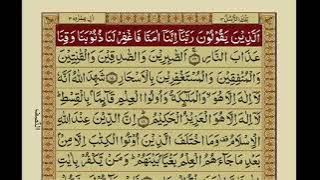 تِلْكَ الرُّسُلُ ۳
اٰلِ عِمْرٰن ۳
اَلَّذِيْنَ يَقُوْلُوْنَ رَبَّنَاۤ اِنَّنَاۤ اٰمَنَّا فَاغْفِرْ لَنَا ذُنُوْبَنَا وَقِنَا
عَذَابَ النَّارِ اَلصّٰبِرِيْنَ وَالصّٰدِقِيْنَ وَالْقٰنِتِيْنَ
وَالْمُنْفِقِيْنَ وَالْمُسْتَغْفِرِيْنَ بِالْاَسْحَارِ شَهِدَ اللّٰهُ اَنَّهٗ
لَاۤ اِلٰهَ اِلَّا هُوَ وَالْمَلٰٓئِكَةُ وَاُولُوا الْعِلْمِ قَآئِمًۢا بِالْقِسْطِ
لَاۤ اِلٰهَ اِلَّا هُوَ الْعَزِيْزُ الْحَكِيْمُ اِنَّ الدِّيْنَ عِنْدَ اللّٰهِ
الْاِسْلَامُ وَمَا اخْتَلَفَ الَّذِيْنَ اُوْتُوا الْكِتٰبَ اِلَّا مِنْۢ
بَعْدِ مَا جَآءَهُمُ الْعِلْمُ بَغْيًۢا بَيْنَهُمْ وَمَنْ يَّكْفُرْ بِاٰيٰتِ
النصف